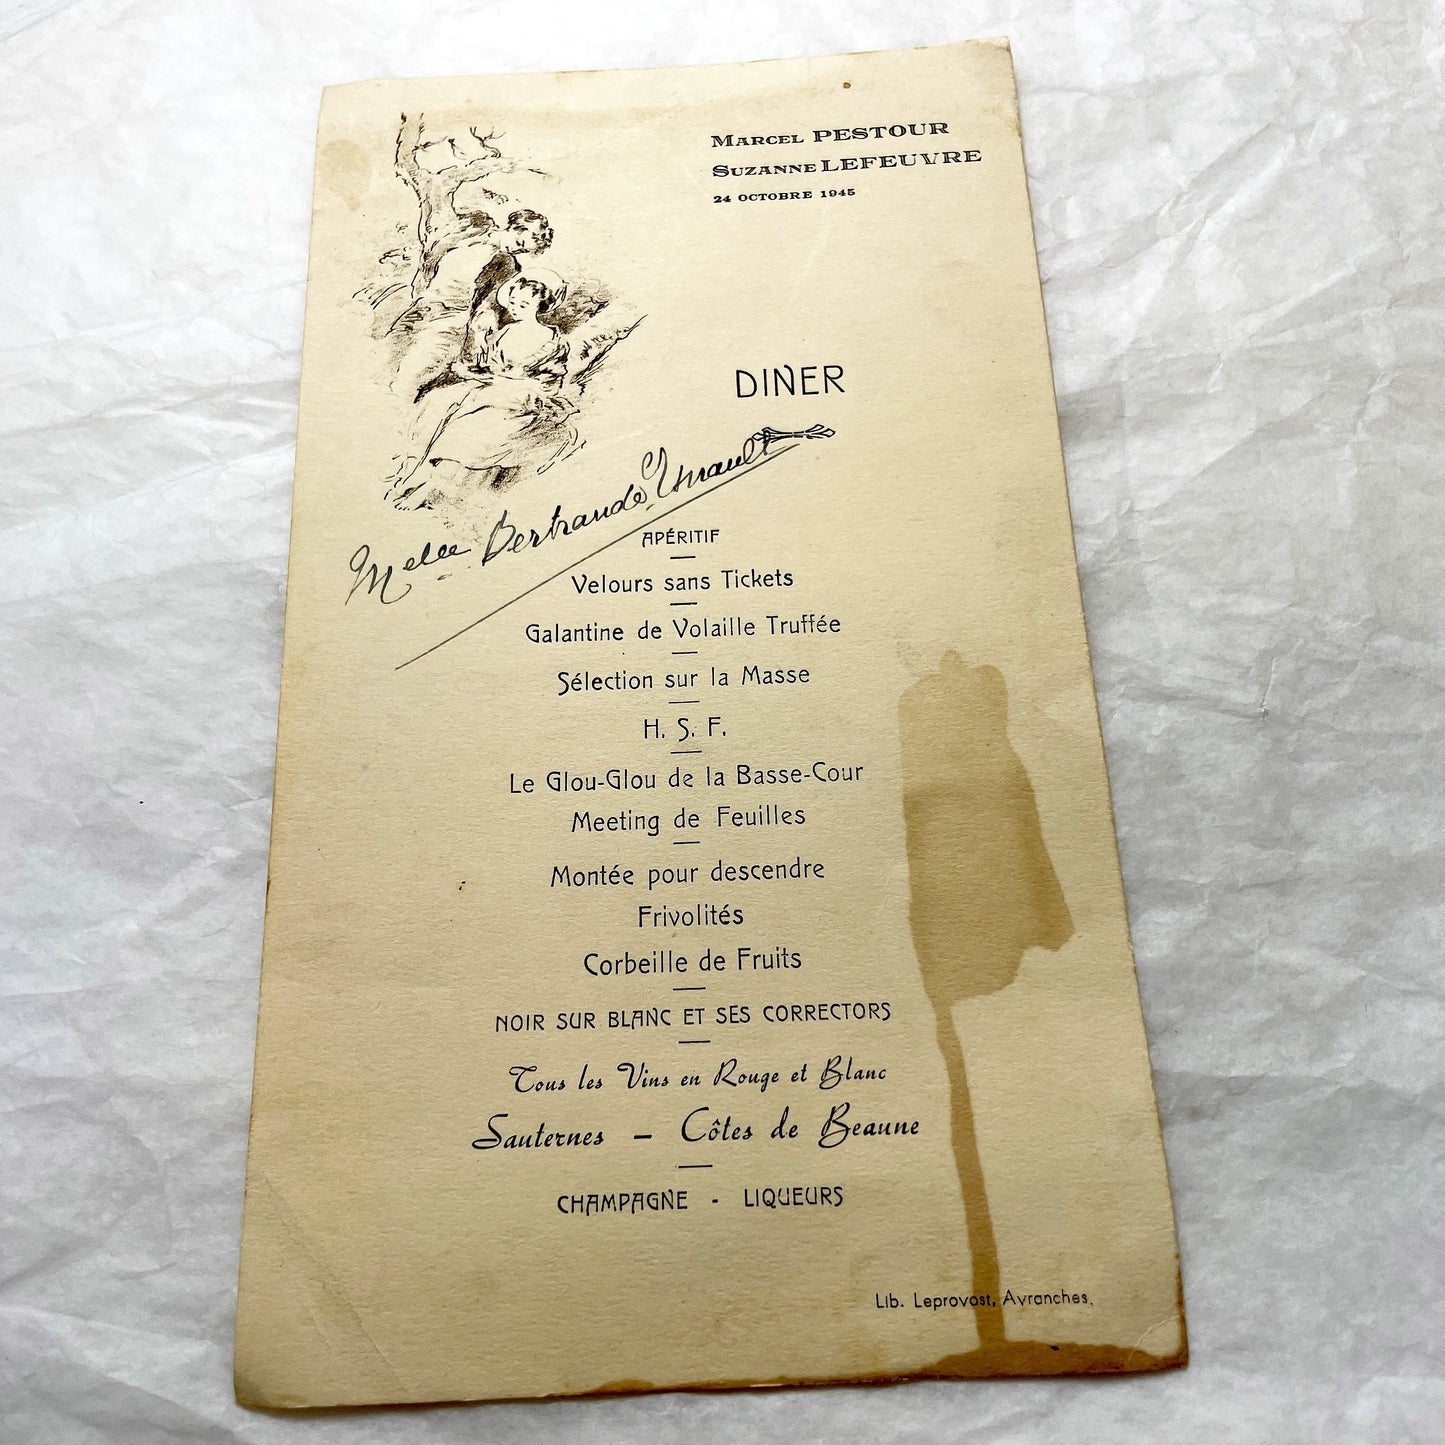 MARCEL PESTOUR
SUZANNE LEFEUVRE
24 OCTOBRE 1945
DINER
Melle Bertrande
APÉRITIF
Velours sans Tickets
Galantine de Volaille Truffée
Sélection sur la Masse
H. S. F.
Le Glou-Glou de la Basse-Cour
Meeting de Feuilles
Montée pour descendre
Frivolités
Corbeille de Fruits
NOIR SUR BLANC ET SES CORRECTORS
Tous les Vins en Rouge et Blanc
Sauternes – Côtes de Beaune
CHAMPAGNE - LIQUEURS
Lib. Leprovost, Avranches.